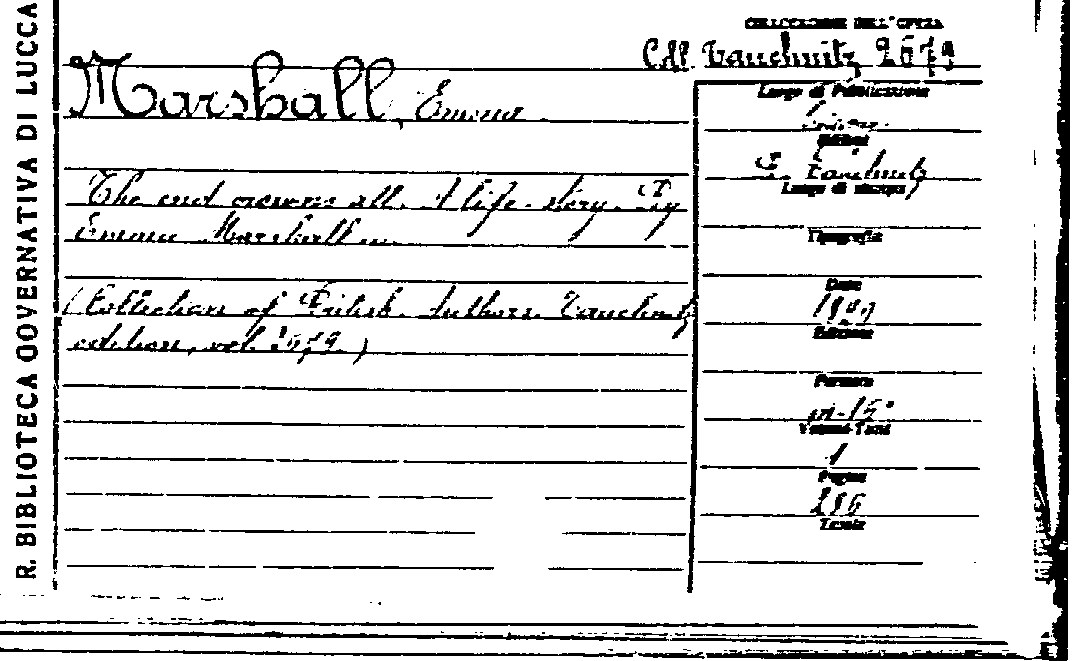 R. BIBLIOTECA GOVERNATIVA DI LUCCA
COLLOCAZIONE DELL'OPERA
Coll. Tauchnitz 2679
Marshall, Emma
The end crowns all. A life-story. By
Emma Marshall
(Collection of British Authors Tauchnitz
edition, vol. 2679.)
Luogo di Pubblicazione
Editore
Luogo di stampa
B. Tauchnitz
Tipografia
Data
Edizione
Formato
in-15°
Volumi-Tomi
1
Pagine
Tavole